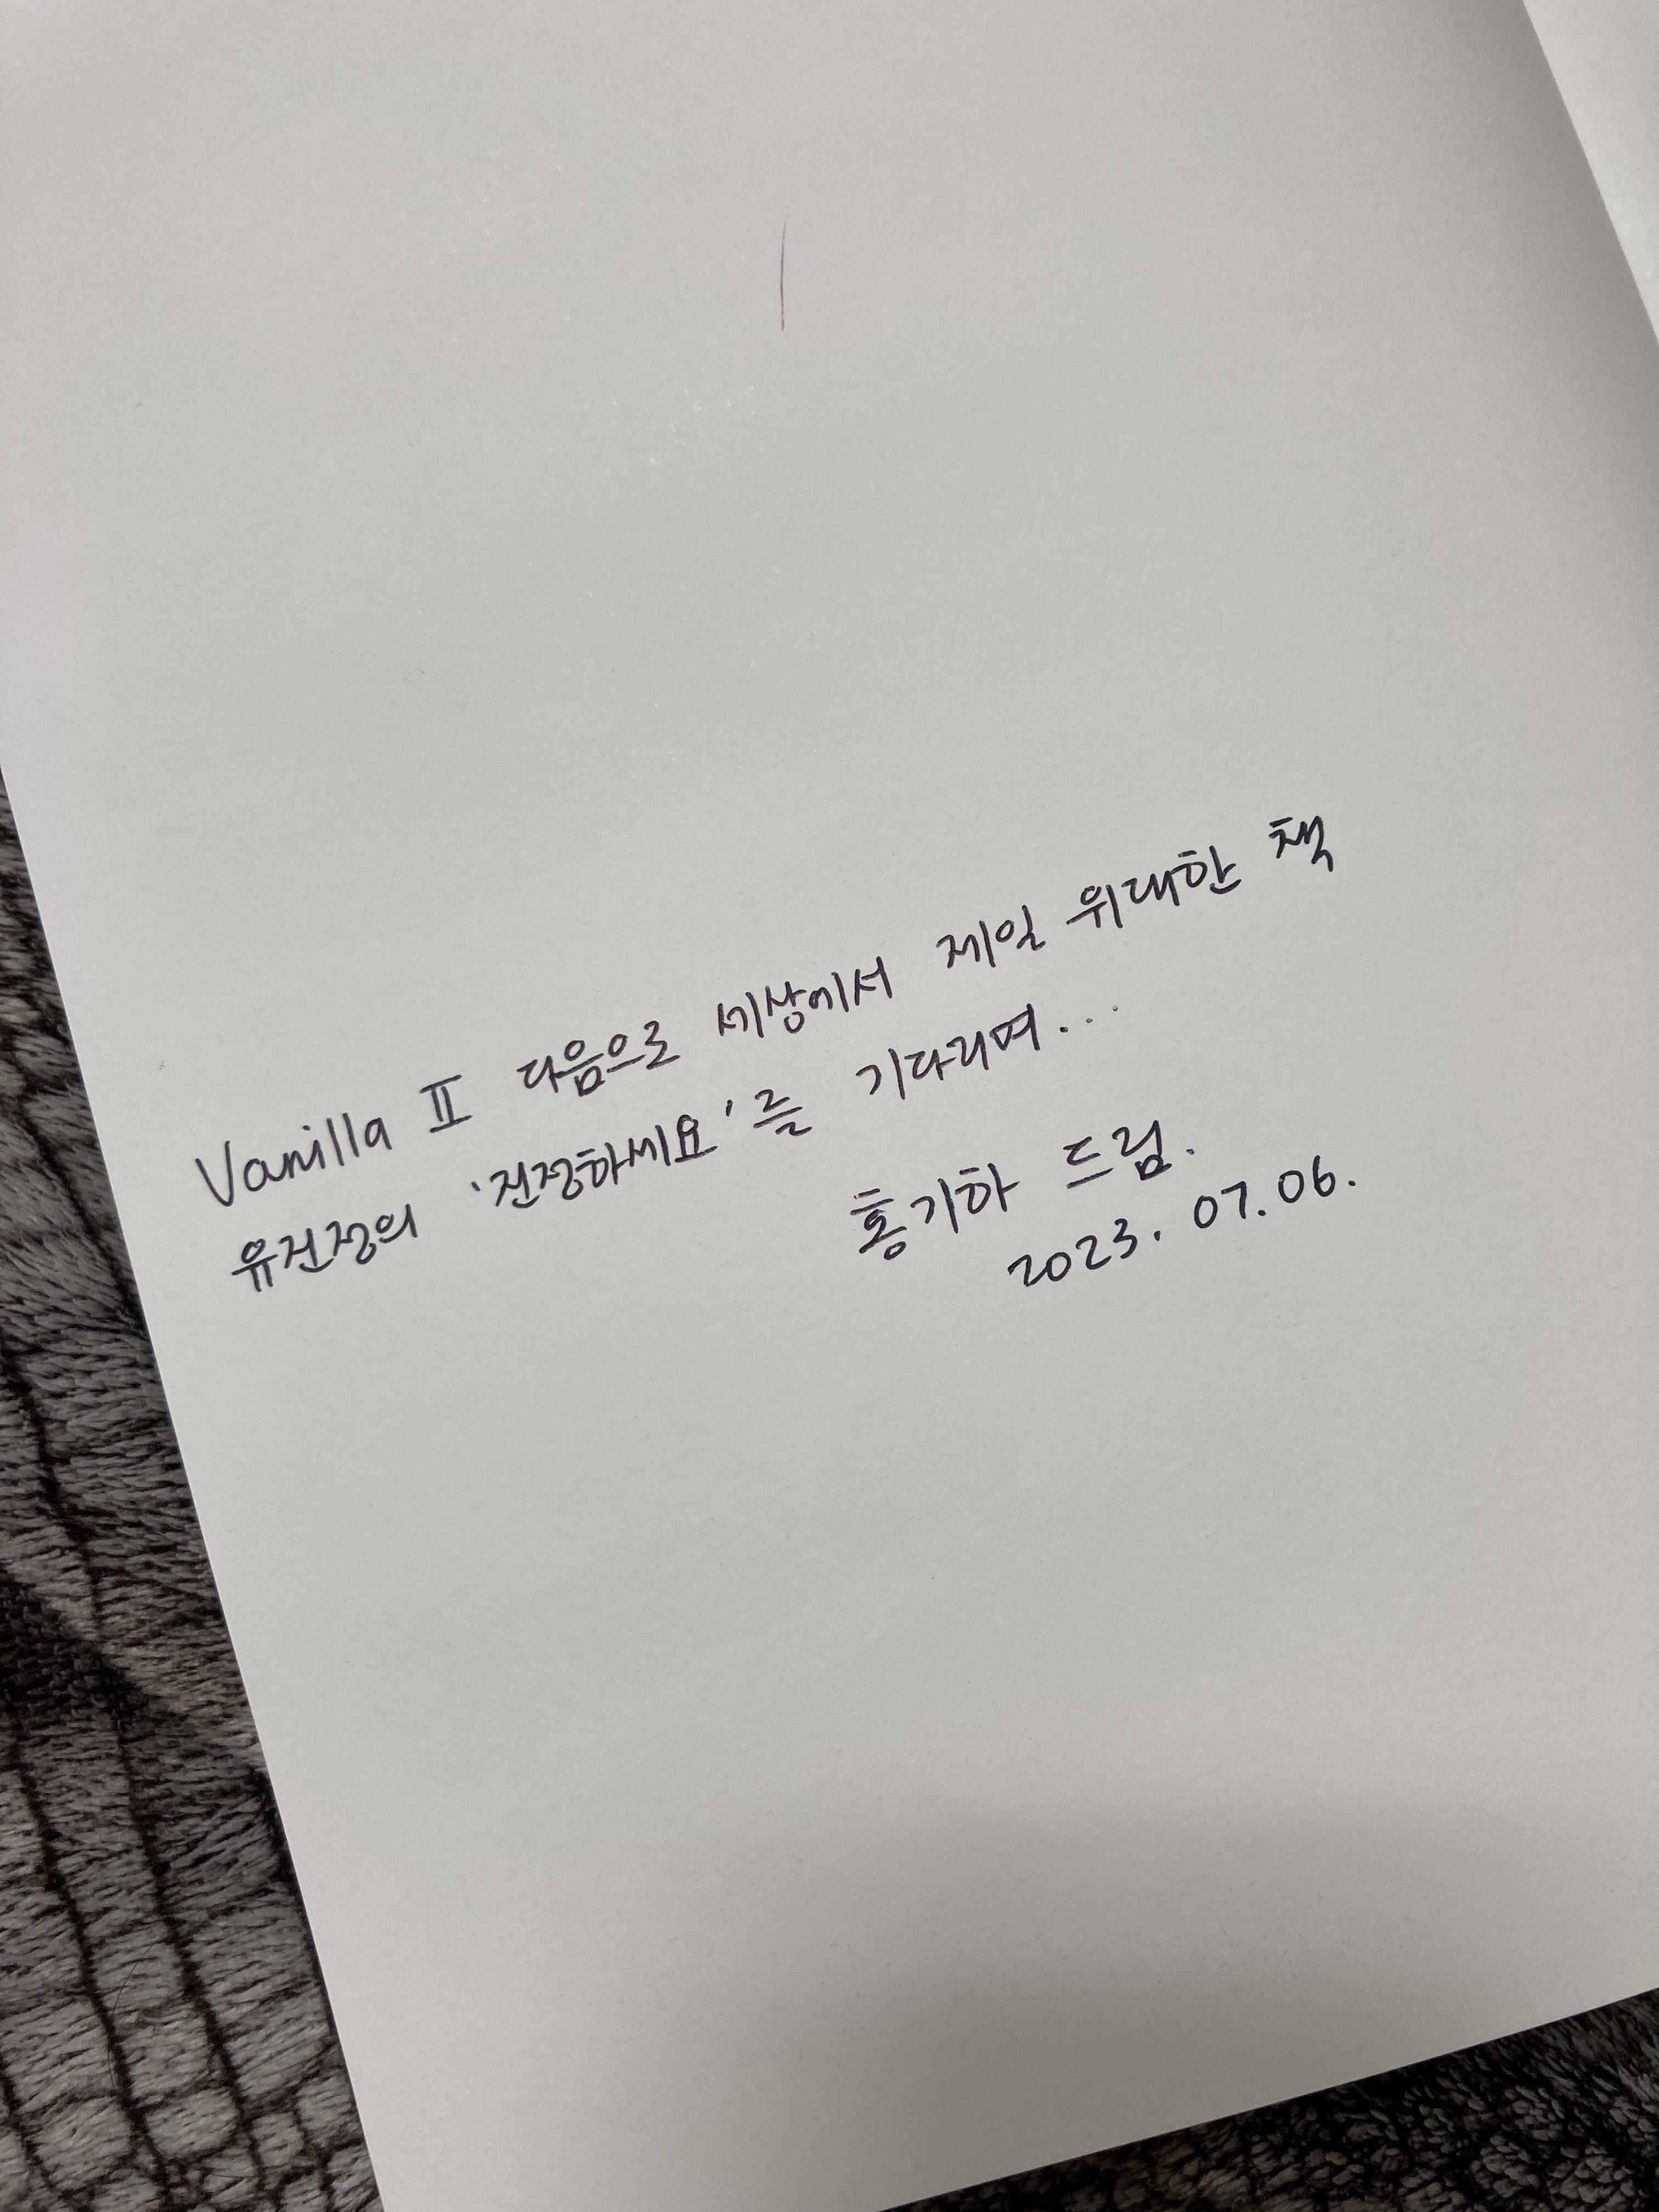 Vanilla Ⅱ 다음으로 세상에서 제일 위대한 책
유진정의 '진정하세요'를 기다리며...
홍기하 드림.
2023. 07. 06.